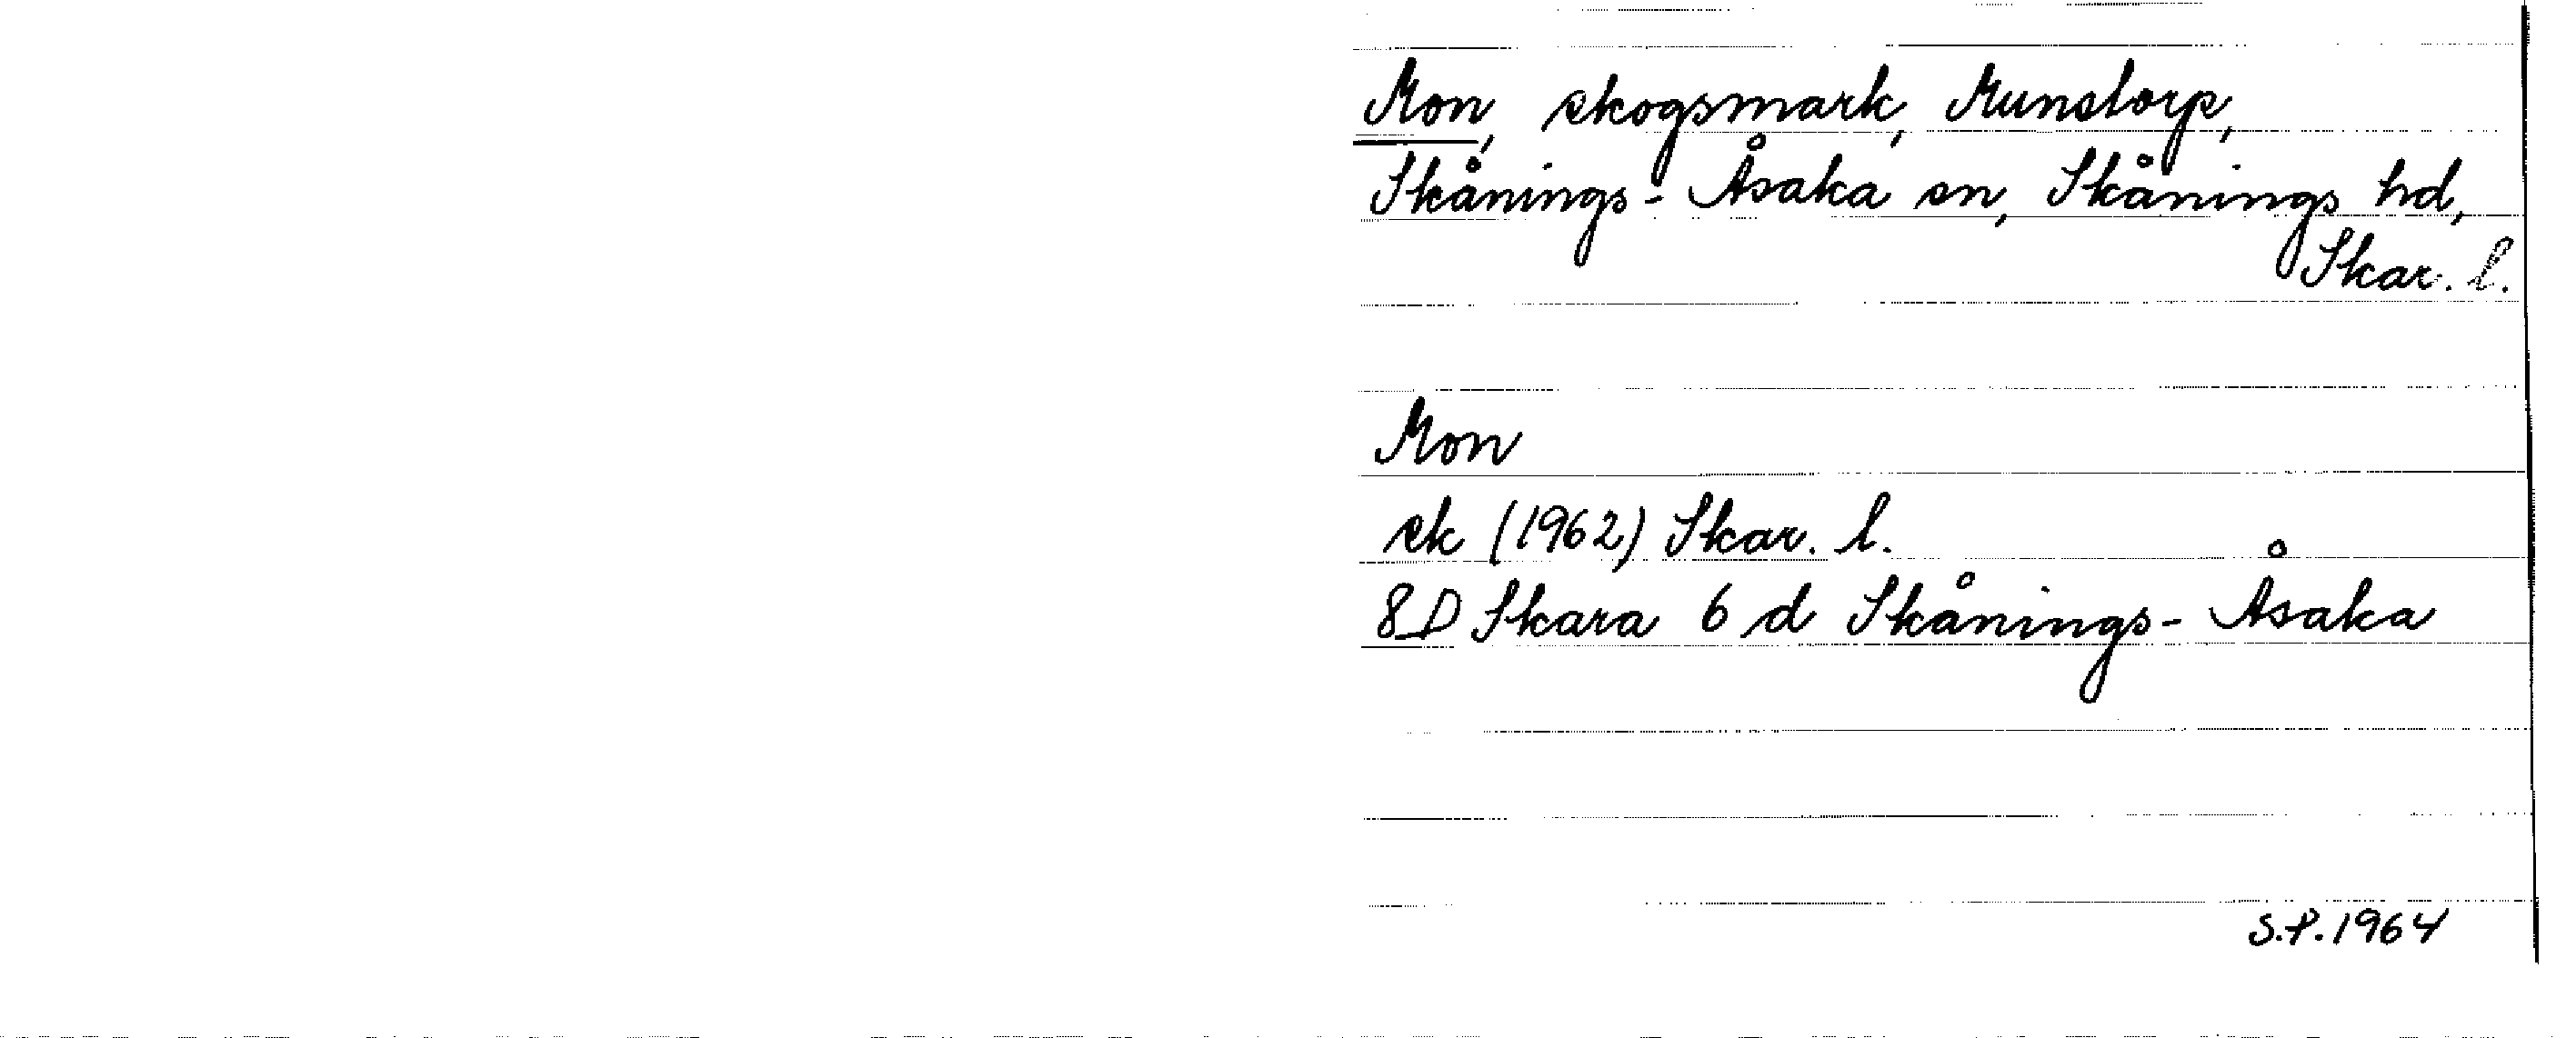 Mon, skogsmark, Munstorp,
Skånings-Åsaka sn, Skånings hd,
Skar. l.
Mon
ek (1962) Skar. l.
8D Skara 6 d Skånings-Åsaka
S.P. 1964